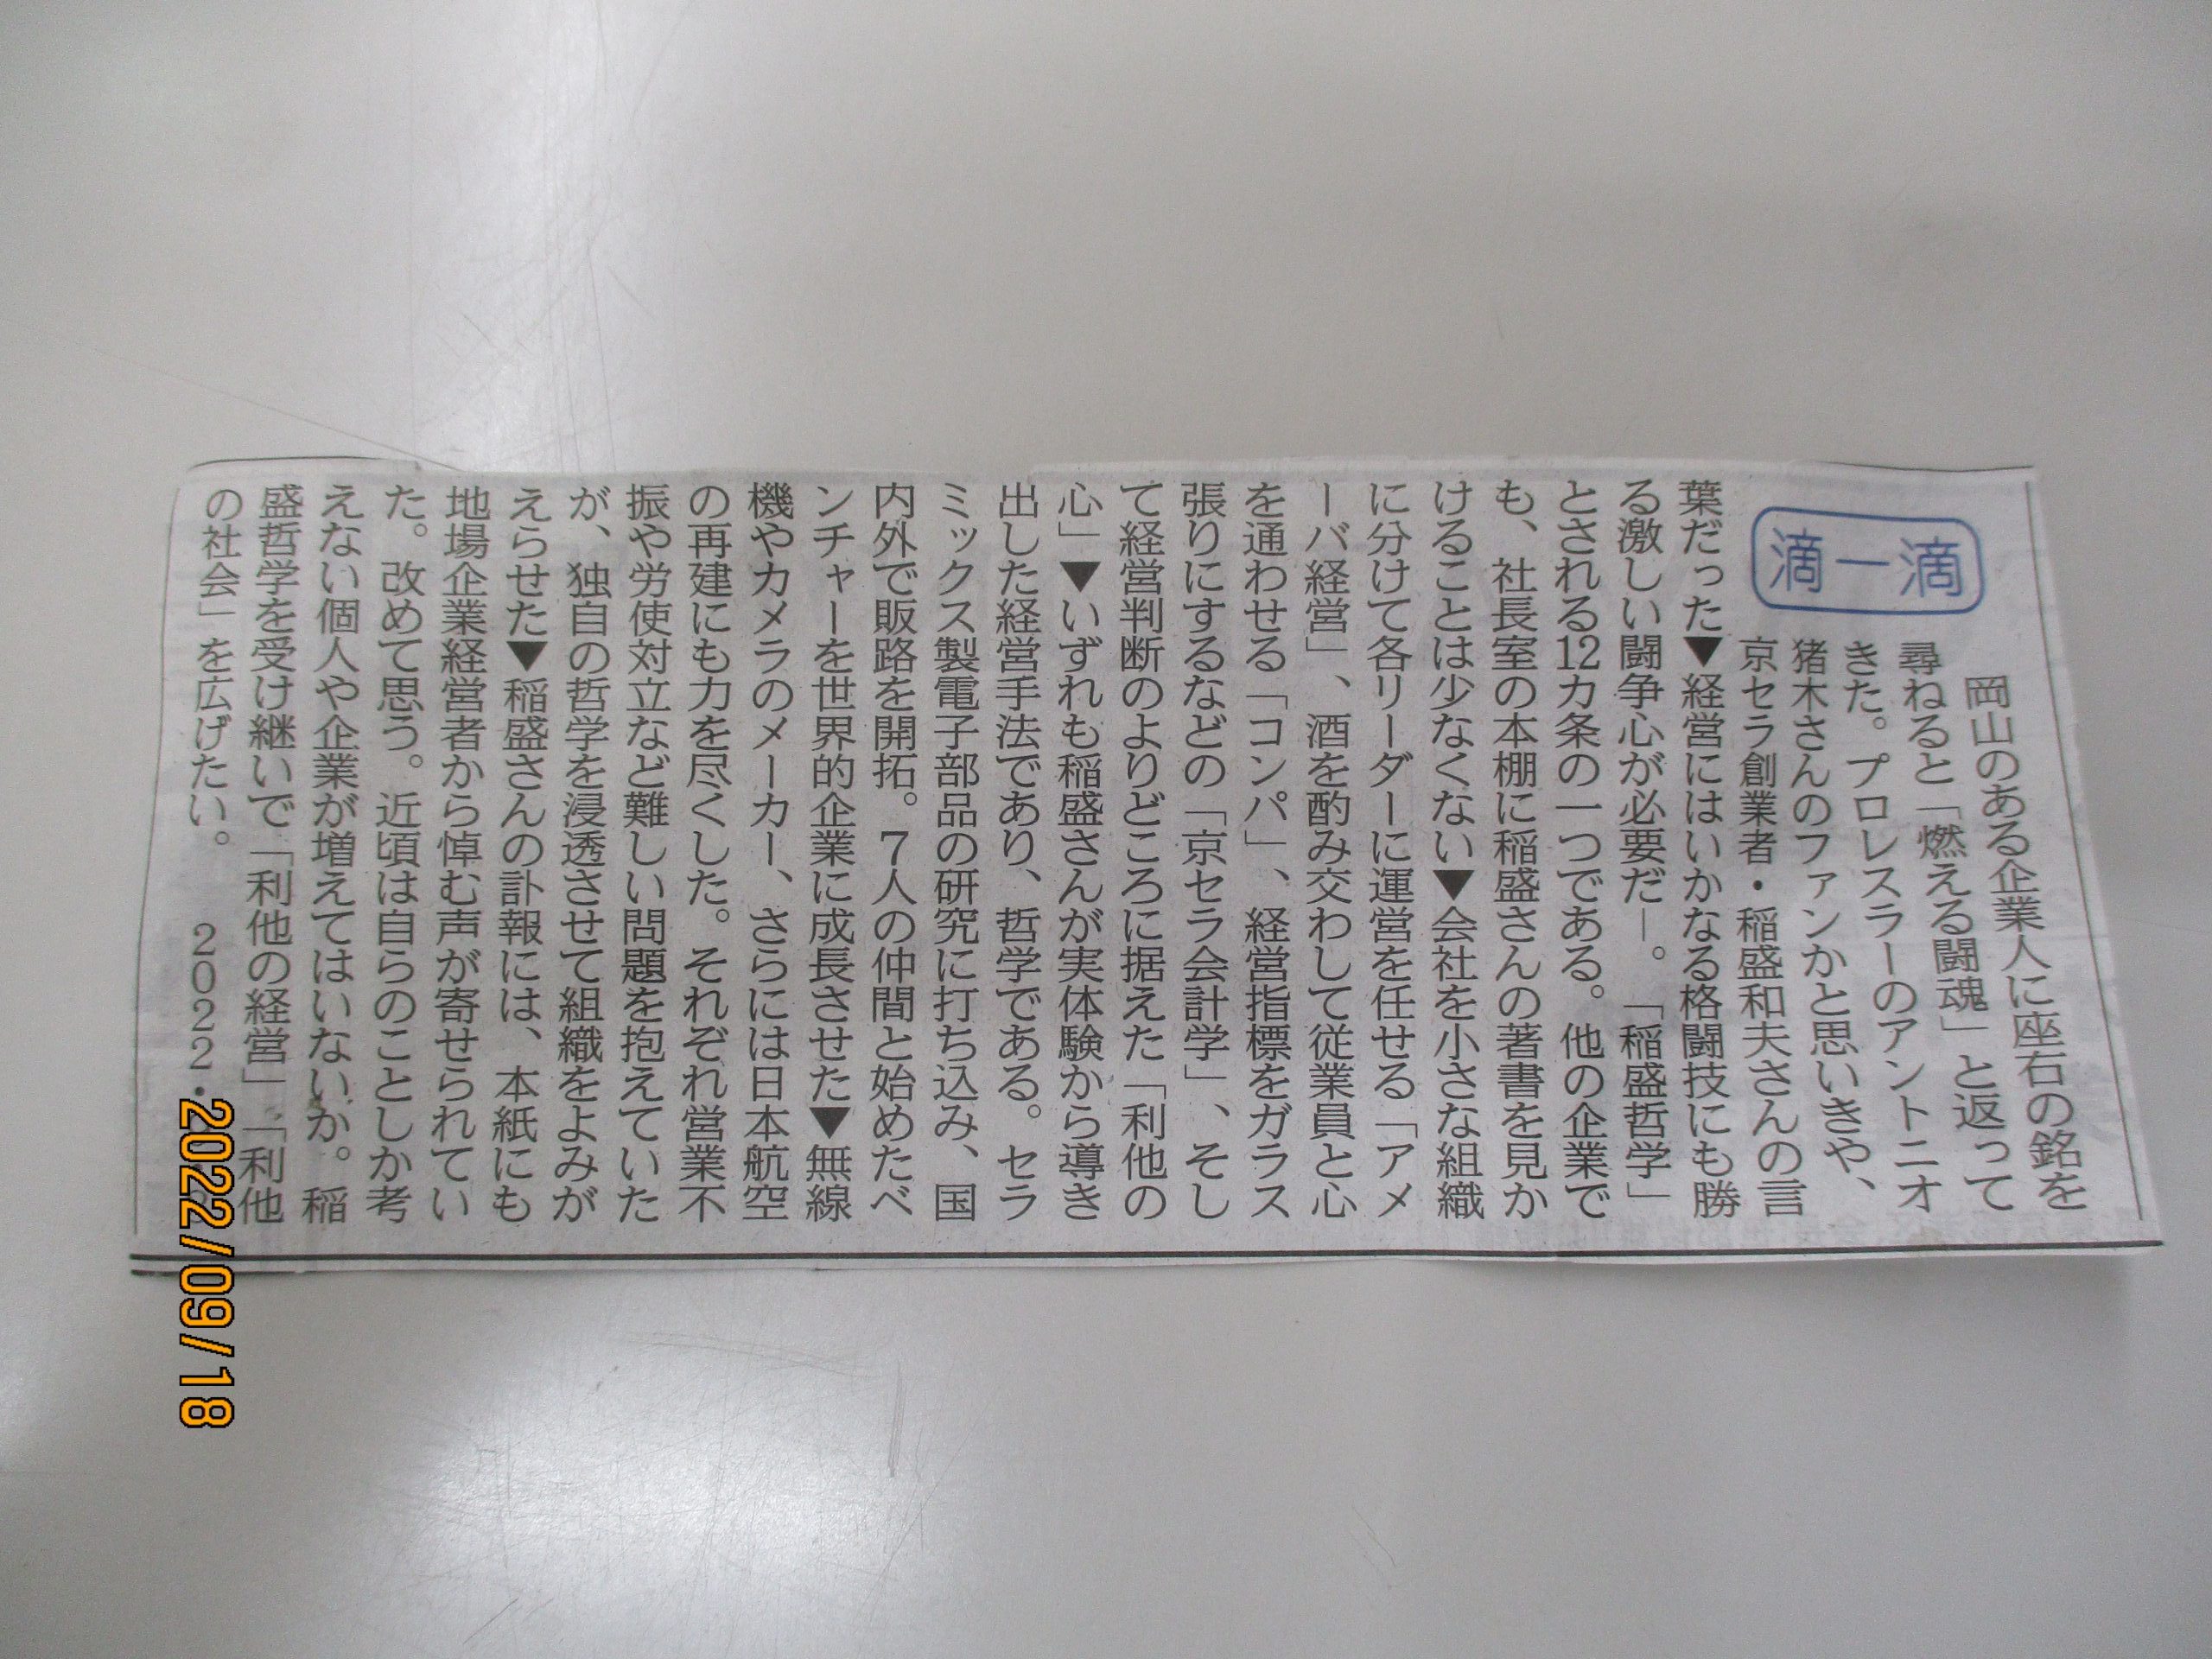 滴一滴
岡山のある企業人に座右の銘を
尋ねると「燃える闘魂」と返って
きた。プロレスラーのアントニオ
猪木さんのファンかと思いきや、
京セラ創業者・稲盛和夫さんの言
葉だった▼経営にはいかなる格闘技にも勝
る激しい闘争心が必要だ―。「稲盛哲学」
とされる12カ条の一つである。他の企業で
も、社長室の本棚に稲盛さんの著書を見か
けることは少なくない▼会社を小さな組織
に分けて各リーダーに運営を任せる「アメ
ーバ経営」、酒を酌み交わして従業員と心
を通わせる「コンパ」、経営指標をガラス
張りにするなどの「京セラ会計学」、そし
て経営判断のよりどころに据えた「利他の
心」▼いずれも稲盛さんが実体験から導き
出した経営手法であり、哲学である。セラ
ミックス製電子部品の研究に打ち込み、国
内外で販路を開拓。7人の仲間と始めたベ
ンチャーを世界的企業に成長させた▼無線
機やカメラのメーカー、さらには日本航空
の再建にも力を尽くした。それぞれ営業不
振や労使対立など難しい問題を抱えていた
が、独自の哲学を浸透させて組織をよみが
えらせた▼稲盛さんの訃報には、本紙にも
地場企業経営者から悼む声が寄せられてい
た。改めて思う。近頃は自らのことしか考
えない個人や企業が増えてはいないか。稲
盛哲学を受け継いで「利他の経営」「利他
の社会」を広げたい。 2022・
2022/09/18